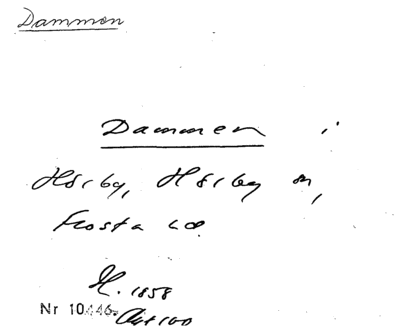 Dammen
Dammen i
Hörby, Hörby sn,
Frosta hd.
H. 1858
Nr 10446.